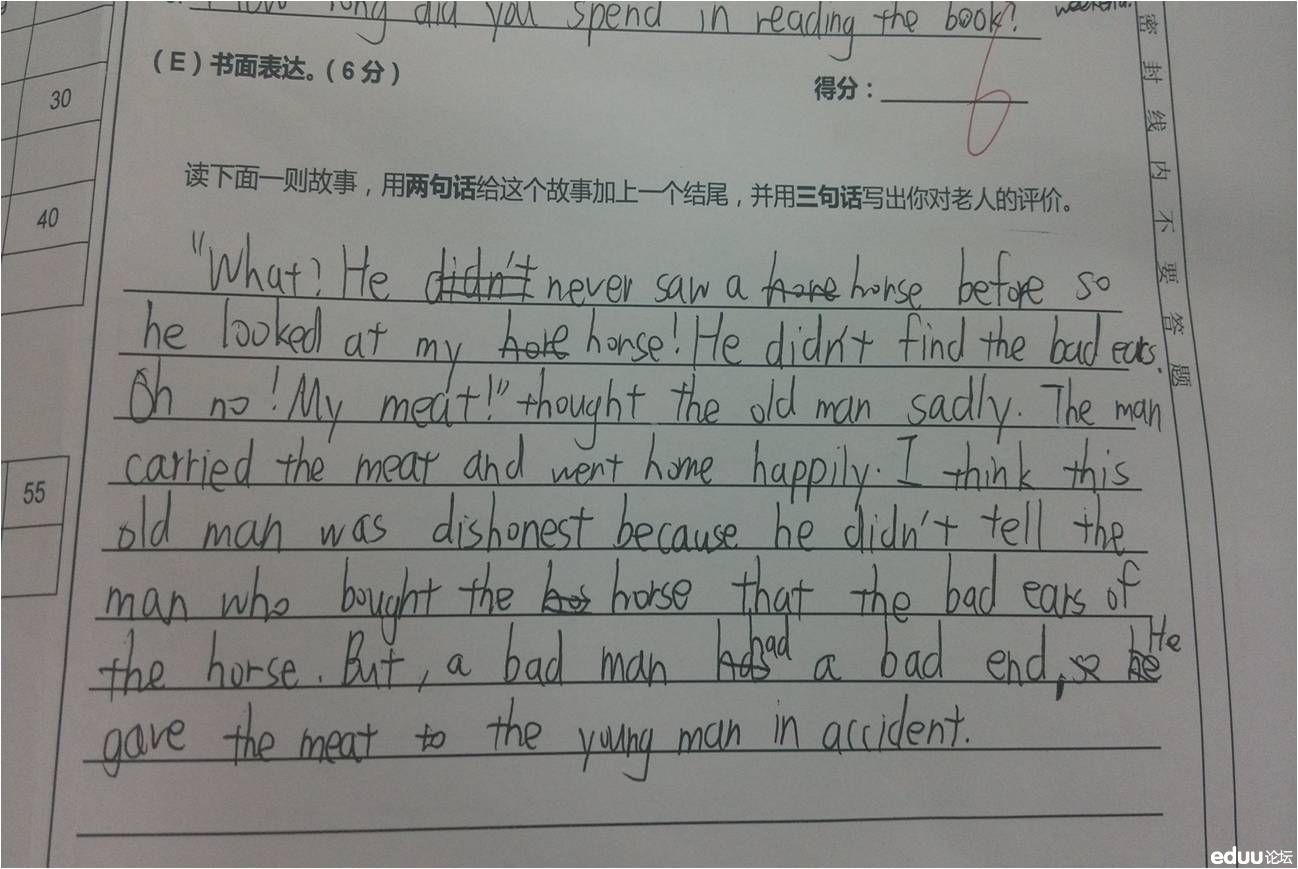 long did you spend in reading the book?
(E)书面表达。(6分)
得分:
6
30
40
55
读下面一则故事,用两句话给这个故事加上一个结尾,并用三句话写出你对老人的评价。
"What? He didn't never saw a hore horse before so
he looked at my hore horse! He didn't find the bad ears.
Oh no! My meat!" thought the old man sadly. The man
carried the meat and went home happily. I think this
old man was dishonest because he didn't tell the
man who bought the hos horse that the bad ears of
the horse. But, a bad man has had a bad end, so he He
gave the meat to the young man in accident.
密封线内不要答题
eduu论坛